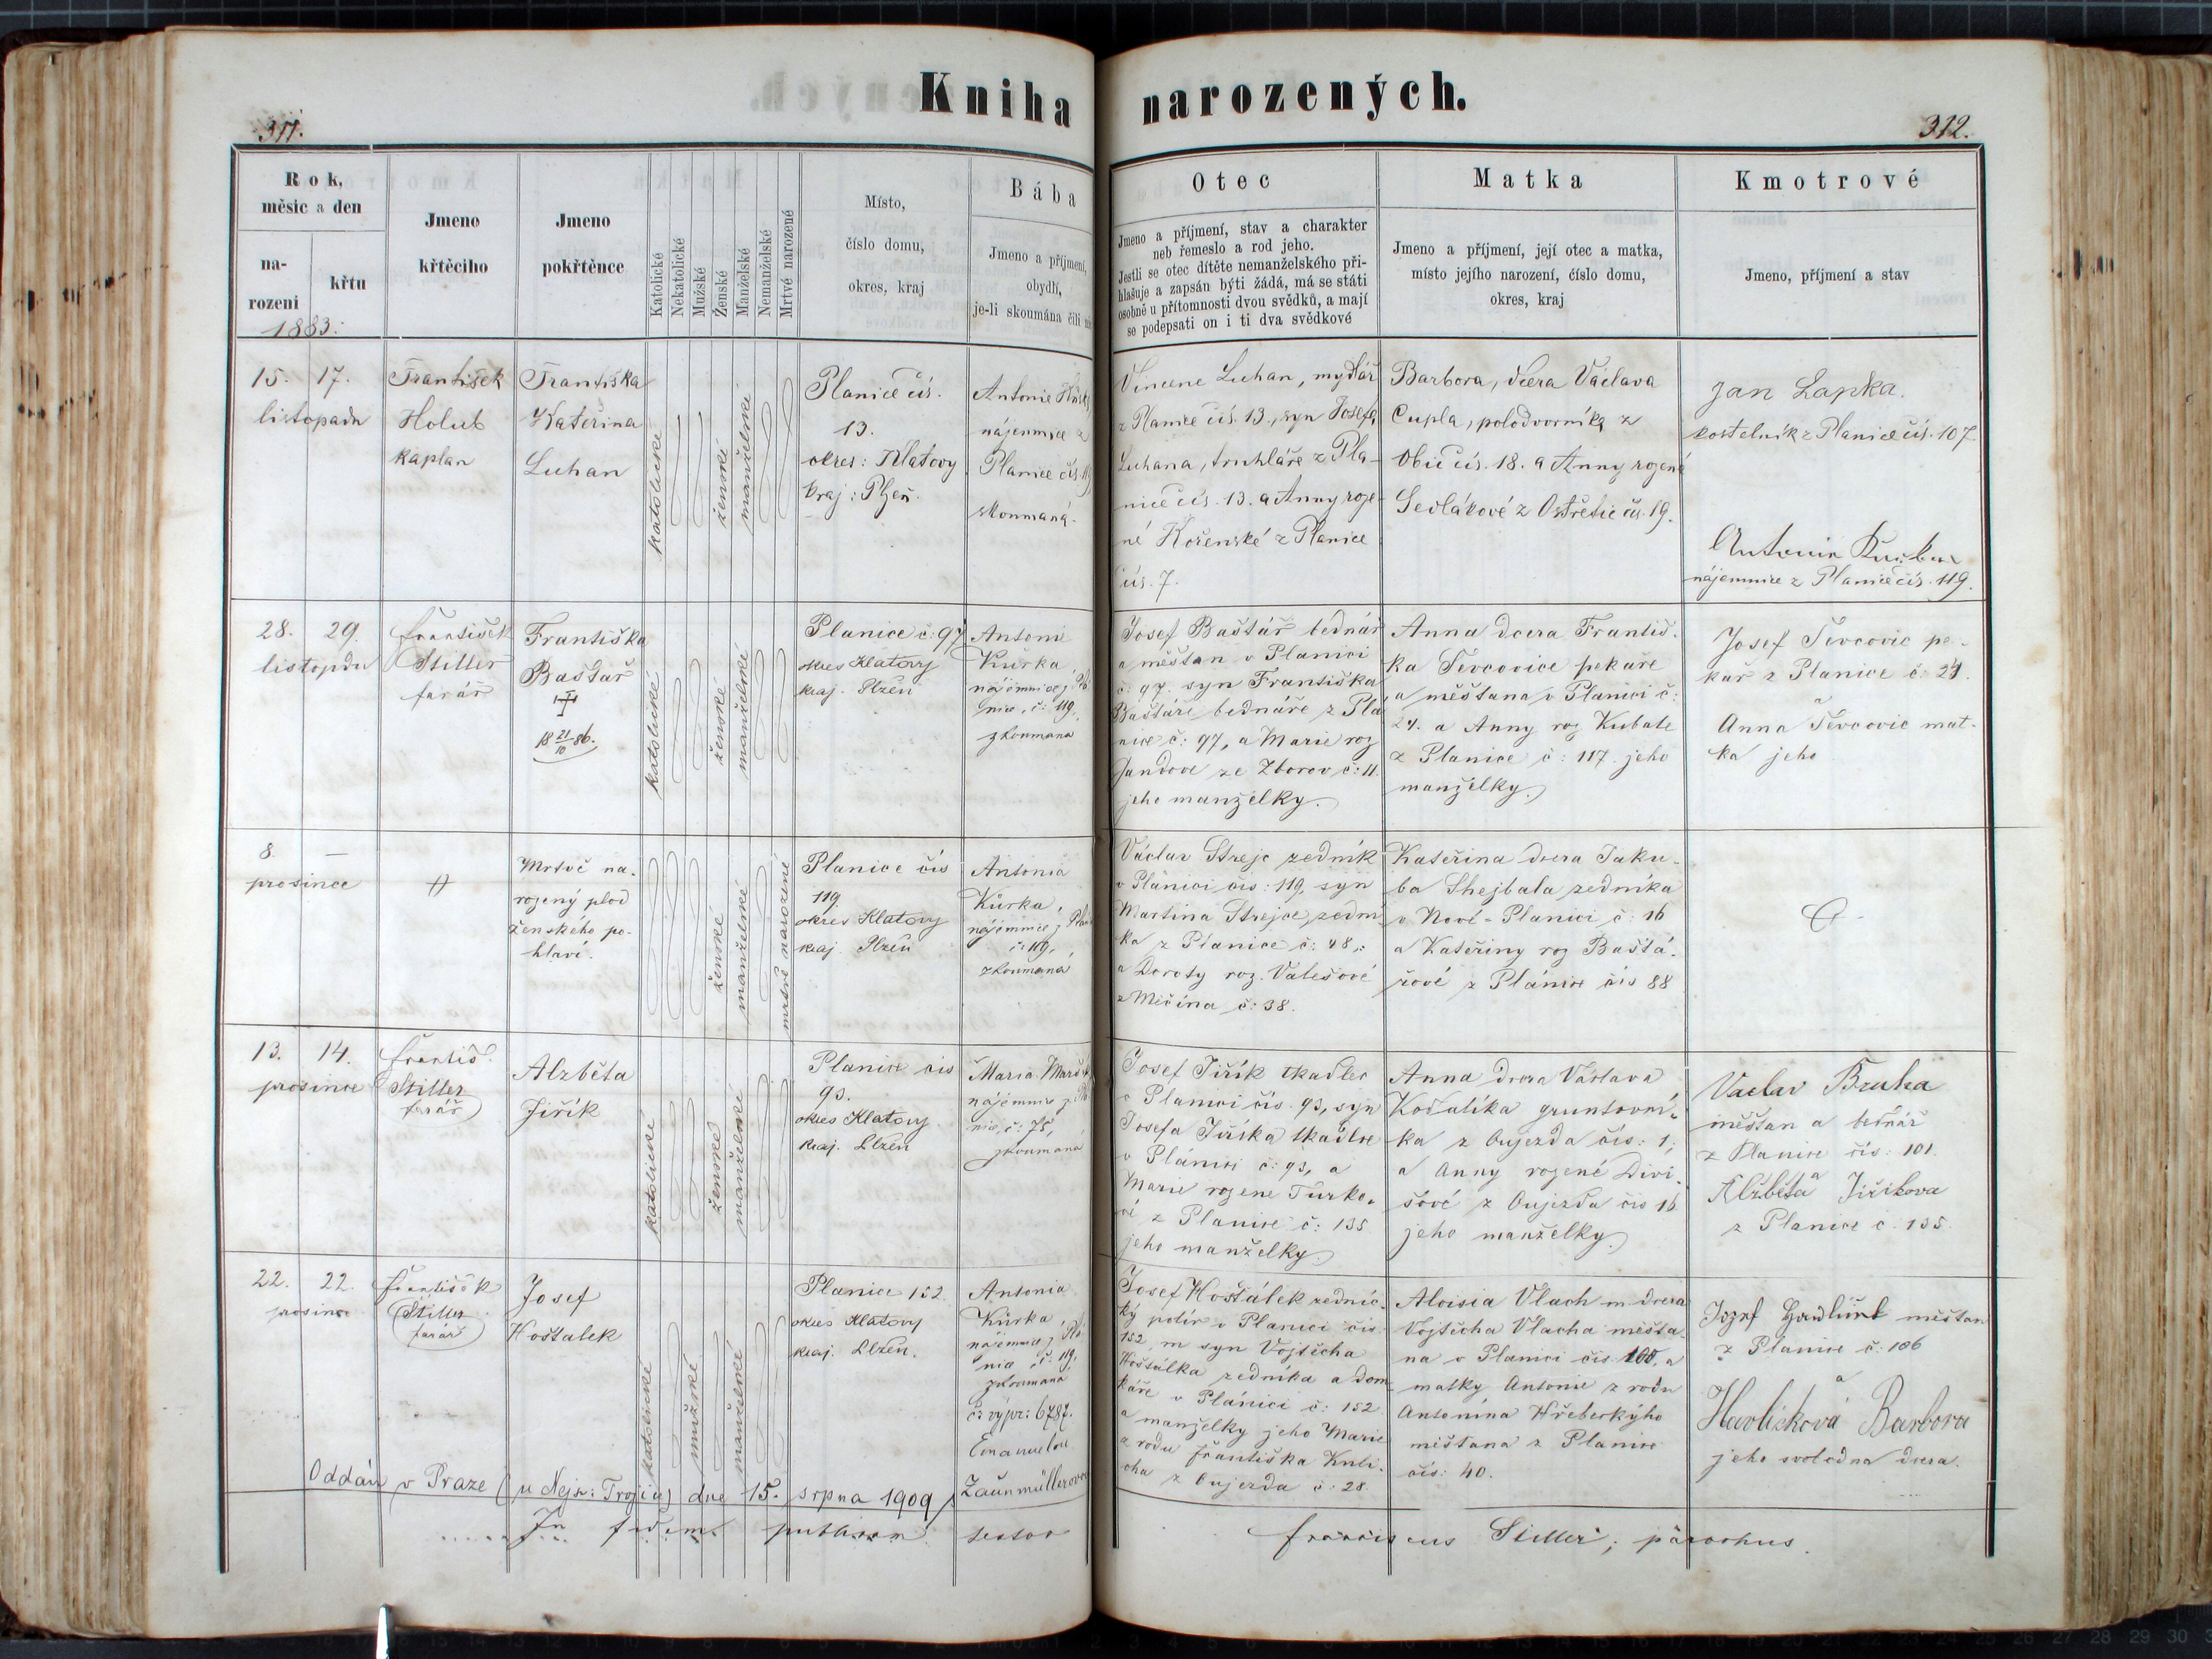 Kniha narozených.
311.
312.
Rok,
měsíc a den
na-
rození
křtu
1883.
Jmeno
křtěcího
Jmeno
pokřtěnce
Katolické
Nekatolické
Mužské
Ženské
Manželské
Nemanželské
Mrtvé narozené
Místo,
číslo domu,
okres, kraj
Bába
Jmeno a příjmení,
obydlí,
je-li skoumána čili
Otec
Jmeno a příjmení, stav a charakter
neb řemeslo a rod jeho.
Jestli se otec dítěte nemanželského při-
hlašuje a zapsán býti žádá, má se státi
osobně u přítomnosti dvou svědků, a mají
se podepsati on i ti dva svědkové
Matka
Jmeno a příjmení, její otec a matka,
místo jejího narození, číslo domu,
okres, kraj
Kmotrové
Jmeno, příjmení a stav
15. 17.
listopadu
František
Holub
kaplan
Františka
Kateřina
Luhan
katolické
ženské
manželské
Planice čís.
13.
okres: Klatovy
kraj: Plzeň.
Antonie
nájemnice z
Planice čís. 119
skoumaná.
Vincenc Luhan, mydlář
z Planice čís. 13., syn Josefa
Luhana, truhláře z Pla-
nice čís. 13. a Anny roze-
né Kořenské z Planice
čís. 7.
Barbora, dcera Václava
Cupla, polodvorníka z
Obic čís. 18. a Anny rozené
Sedlákové z Ostřetic čís. 19.
Jan Lapka.
kostelník z Planice čís. 107.
Antonia Kurka
nájemnice z Planice čís. 119.
28. 29.
listopdu
František
Stiller
farář
Františka
Baštář
18 21/10 86.
katolické
ženské
manželské
Planice č: 97
okres Klatovy
kraj. Plzeň
Antonie
Kůrka,
nájemnice z Pla
nice, č: 119.
zkoumaná
Josef Baštář bednář
a měštan v Planici
č: 97. syn Františka
Baštáře bednáře z Pla
nice č: 97, a Marie roz
Jandove ze Zborov č: 11.
jeho manželky.
Anna dcera Františ-
ka Ševcovice pekaře
a měštana v Planici č:
24. a Anny roz Kubate
z Planice č: 117. jeho
manželky.
Josef Ševcovic pe-
kař z Planice č: 24
Anna Ševcovic mat-
ka jeho
8. —
prosince
Mrtvě na-
rozený plod
ženského po-
hlaví.
ženské
manželské
mrtvě narozené
Planice čís
119.
okres Klatovy
kraj. Plzeň
Antonia
Kůrka,
nájemnice z Pla
č: 119,
zkoumaná
Václav Strejc zedník
v Plánici čís: 119, syn
Martina Strejce, zední
ka z Planice č: 48,:
a Doroty roz. Valešové
z Měčína č: 38.
Kateřina dcera Jaku-
ba Shejbala zedníka
v Nové-Planici č: 16
a Kateřiny roz Baštá-
řové z Plánice čís 88
13. 14.
prosince
Františ.
Stiller
farář
Alzběta
Jiřík
katolické
ženské
manželské
Planice čis
93.
okres Klatovy
kraj. Plzeň
Maria
nájemnice z Pla
nice, č: 75,
zkoumaná
Josef Jiřík tkadlec
v Planici čís. 93, syn
Josefa Jiříka tkadlce
v Plánici č: 93, a
Marie rozene Turko-
vé z Planice č: 135
jeho manželky
Anna dcera Václava
Košalíka gruntovní-
ka z Oujezda čís: 1,
a Anny rozené Divi-
šové z Oujezda čís 16
jeho manželky.
Vaclav Bruha
měštan a bednář
z Planice čís: 101.
a
Alžběta Jiříkova
z Planice č. 135.
22. 22.
prosince
František
Stiller
farář
Josef
Hoštalek
katolické
mužské
manželské
Planice 152
okres Klatovy
kraj. Plzeň.
Antonia
Kůrka,
nájemnice z Pla
nice, č: 119,
zkoumaná
Čís výpr: 6787.
Emanuelou
Zaunmüllerovou
Josef Hoštálek zednic-
ký polír v Planici čís
152, m syn Vojtěcha
Hoštálka zedníka a dom
káře v Plánici č: 152
a manželky jeho Marie
z rodu Františka
z Oujezda č: 28.
Aloisia Vlach m dcera
Vojtěcha Vlacha měšta-
na v Planici čís 100, a
matky Antonie z rodu
Antonína Hřebeckýho
měštana z Planice
čís: 40.
měštan
z Planice č: 106
a
Havlíčková Barbora
jeho svobodna dcera.
Oddán v Praze (u Nejsv: Trojice) dne 15. srpna 1909 s
In fidem publicam testor
Franciscus Stiller; parochus.